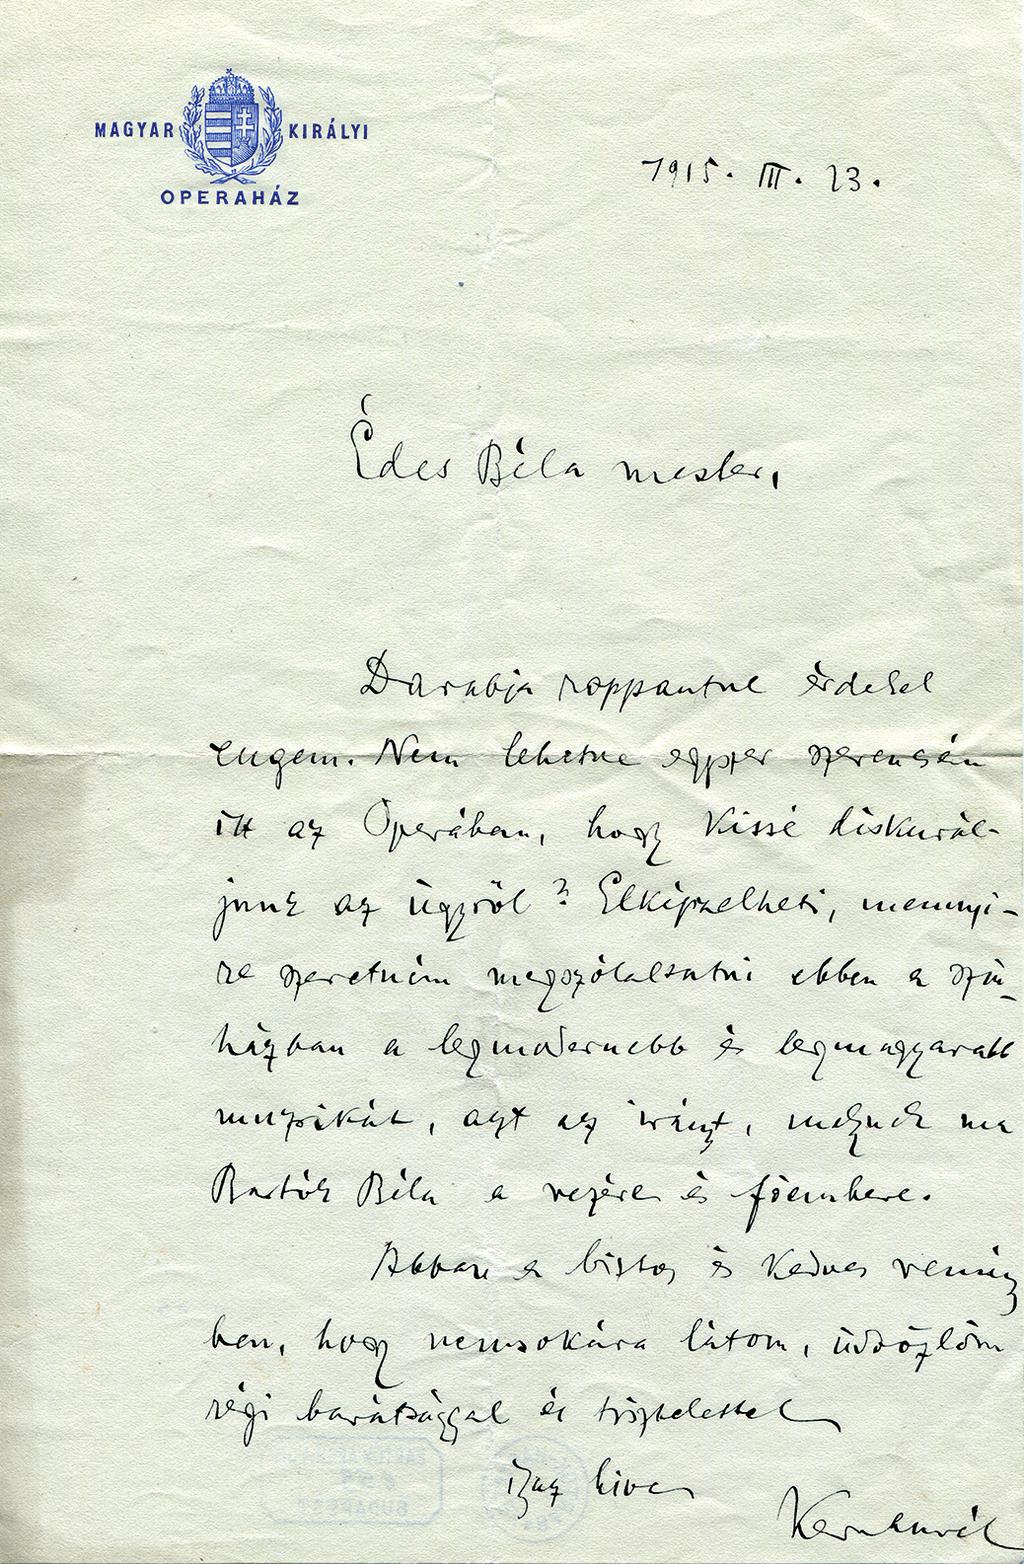 MAGYAR KIRÁLYI
OPERAHÁZ
1915. III. 23.
Édes Béla mester,
Darabja roppantul érdekel
engem. Nem lehetne egyszer szerencsém
itt az Operában, hogy kissé diskurál-
junk az ügyről? Elképzelheti, mennyi-
re szeretném megszólaltatni ebben a szín-
házban a legmodernebb és legmagyarabb
muzsikát, azt az irányt, melynek ma
Bartók Béla a vezére és főembere.
Abban a biztos és kedves remény
ben, hogy nemsokára látom, üdvözlöm
régi barátsággal és tisztelettel
igaz hive
Kern Aurél
BUDAPEST